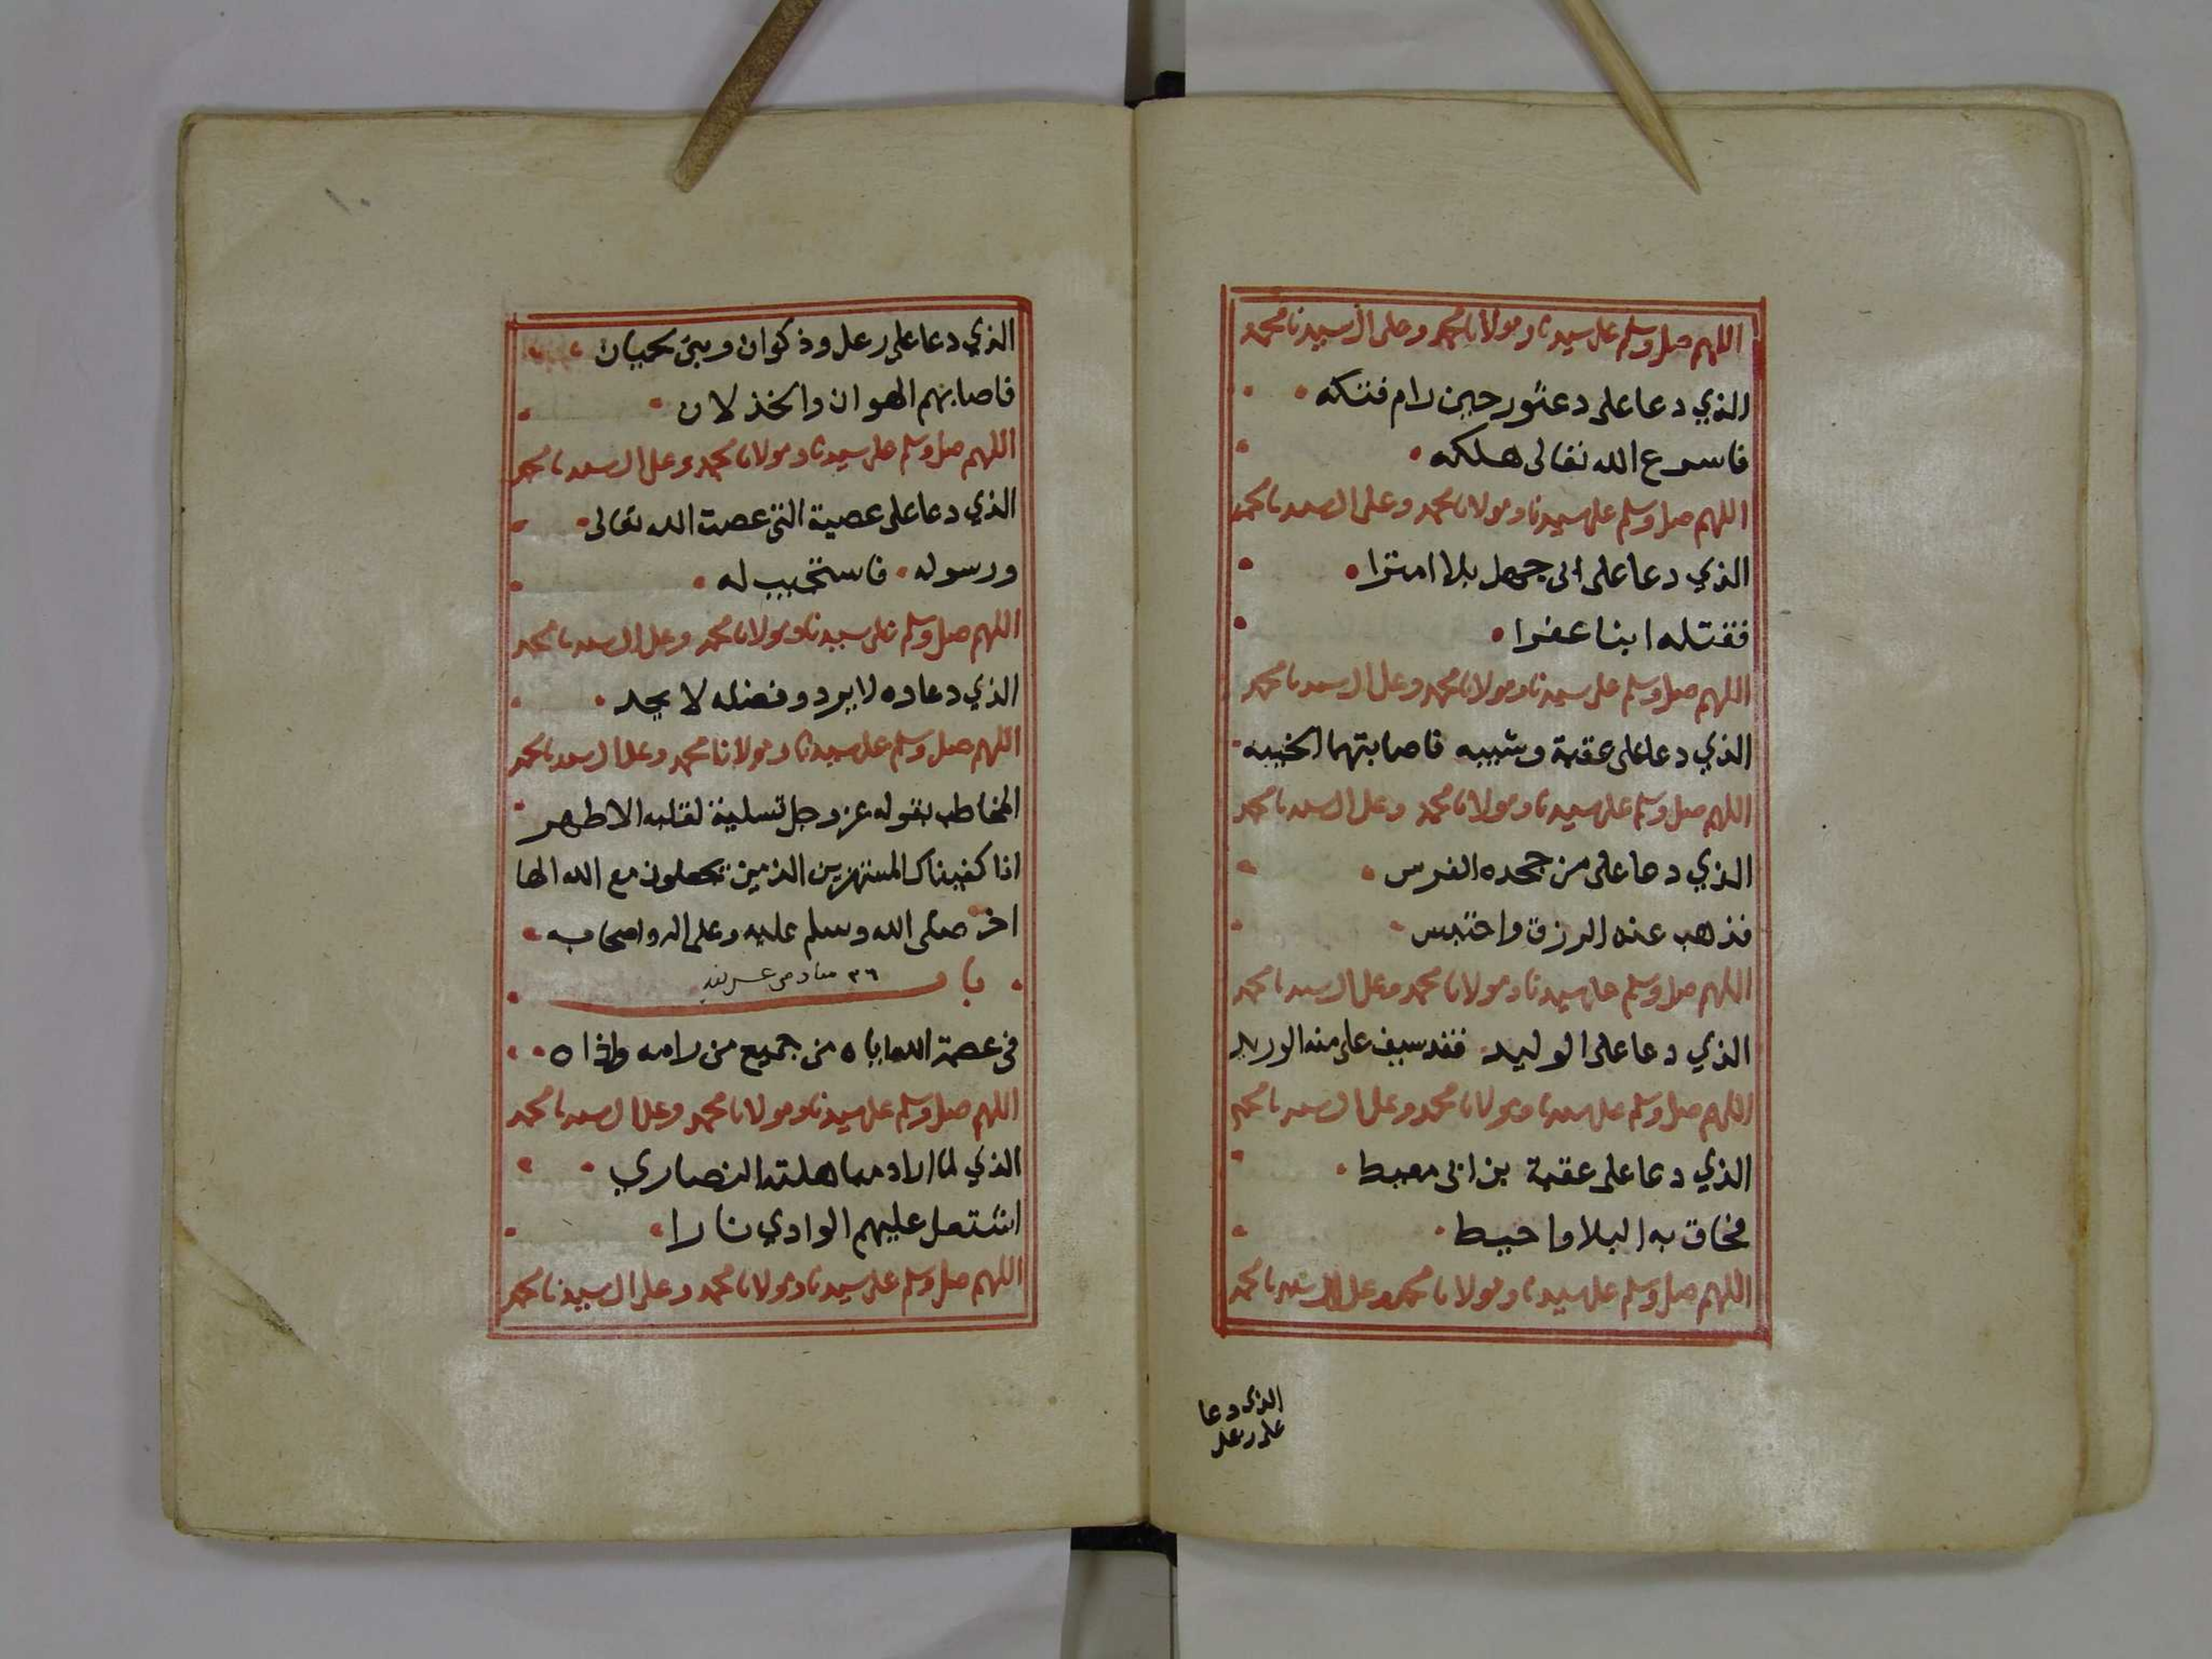 اللهم صل وسلم على سيدنا ومولانا محمد وعلى ال سيدنا محمد
الذي دعا على دعثور حين رام فتكه
فاسرع الله تعالى هلكه
اللهم صل وسلم على سيدنا ومولانا محمد وعلى ال سيدنا محمد
الذي دعا على ابى جهل بلا امترا
فقتله ابنا عفرا
اللهم صل وسلم على سيدنا ومولانا محمد وعلى ال سيدنا محمد
الذي دعا على عقبة وشيبه فاصابتهما الخيبه
اللهم صل وسلم على سيدنا ومولانا محمد وعلى ال سيدنا محمد
الذي دعا على من جحده الفرس
فذهب عنه الرزق واحتبس
اللهم صل وسلم على سيدنا ومولانا محمد وعلى ال سيدنا محمد
الذي دعا على الوليد فقد سيف على منه الوريد
اللهم صل وسلم على سيدنا ومولانا محمد وعلى ال سيدنا محمد
الذي دعا على عقبة بن ابى معيط
فحاق به البلا واحيط
اللهم صل وسلم على سيدنا ومولانا محمد وعلى ال سيدنا محمد
الذي دعا
على رعل
الذي دعا على رعل وذكوان وبنى لحيان
فاصابهم الهوان والخذلان
اللهم صل وسلم على سيدنا ومولانا محمد وعلى ال سيدنا محمد
الذي دعا على عصية التى عصت الله تعالى
ورسوله فاستجيب له
اللهم صل وسلم على سيدنا ومولانا محمد وعلى ال سيدنا محمد
الذي دعاده لا يرد وفضله لا يحد
اللهم صل وسلم على سيدنا ومولانا محمد وعلى ال سيدنا محمد
المخاطب بقوله عز وجل تسلية لقلبه الاطهر
انا كفيناك المستهزين الذين يجعلون مع الله الها
اخر صلى الله وسلم عليه وعلى اله واصحابه
باب ٣٦
فى عصمة الله اياه من جميع من رامه واذاه
اللهم صل وسلم على سيدنا ومولانا محمد وعلى ال سيدنا محمد
الذي لما اراد مباهلته النصاري
اشتعل عليهم الوادي نارا
اللهم صل وسلم على سيدنا ومولانا محمد وعلى ال سيدنا محمد